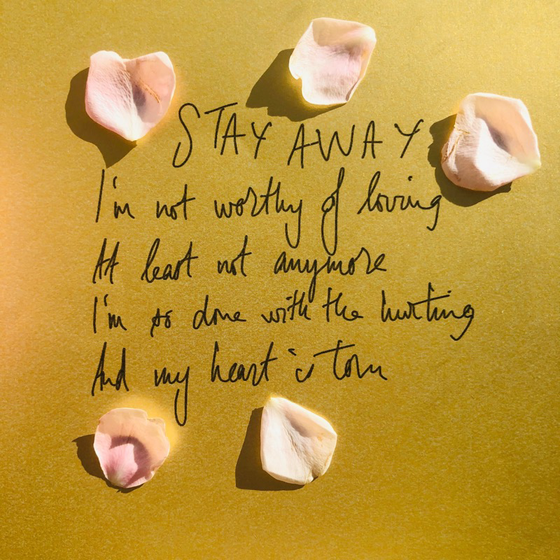 STAY AWAY
I'm not worthy of loving
At least not anymore
I'm so done with the hurting
And my heart is torn